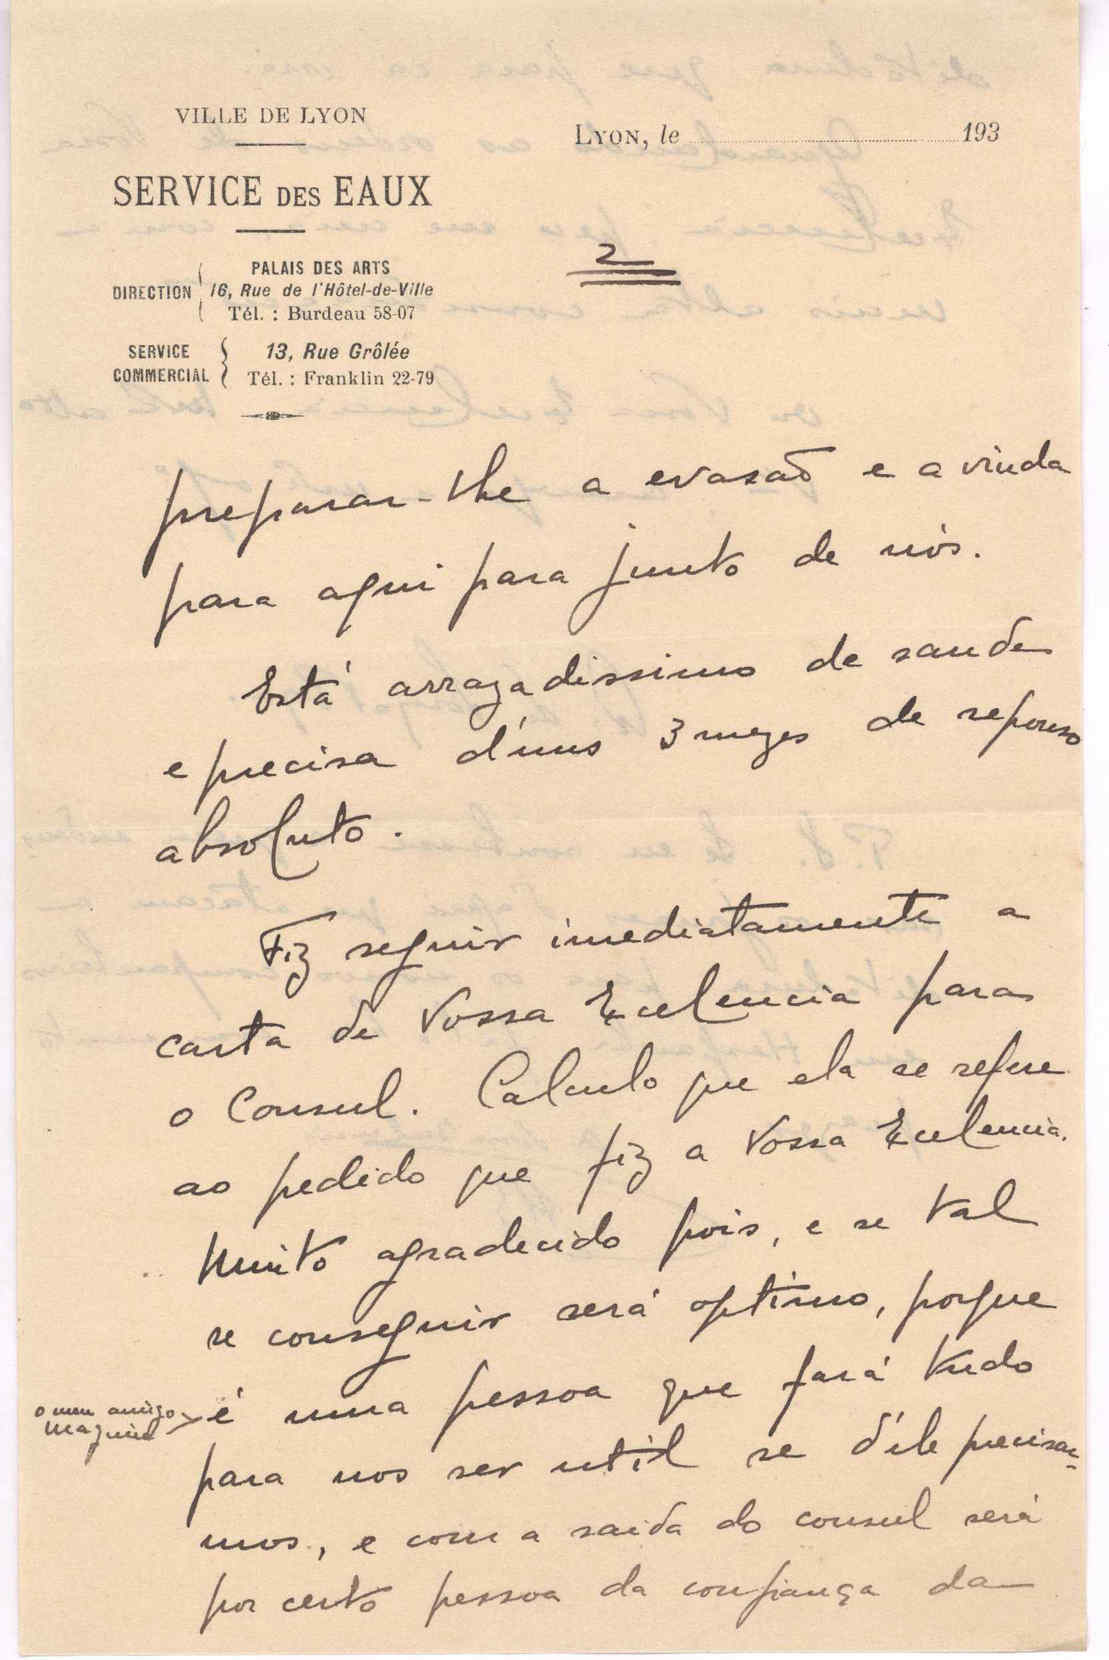 VILLE DE LYON
SERVICE DES EAUX
DIRECTION
PALAIS DES ARTS
16, Rue de l'Hôtel-de-Ville
Tél. : Burdeau 58-07
SERVICE COMMERCIAL
13, Rue Grôlée
Tél. : Franklin 22-79
LYON, le 193
2
preparar-lhe a evasaõ e a vinda
para aqui para junto de nós.
Está arrazadissimo de saude
e precisa d'uns 3 mezes de repouso
absoluto.
Fiz seguir imediatamente a
carta de Vossa Excelencia para
o Consul. Calculo que ela se refere
ao pedido que fiz a Vossa Excelencia.
Muito agradecido pois, e se tal
se conseguir será optimo, porque
o meu amigo
é uma pessoa que fará tudo
para nos ser util se d'ele precisar-
mos, e com a saida do consul será
por certo pessoa da confiança da